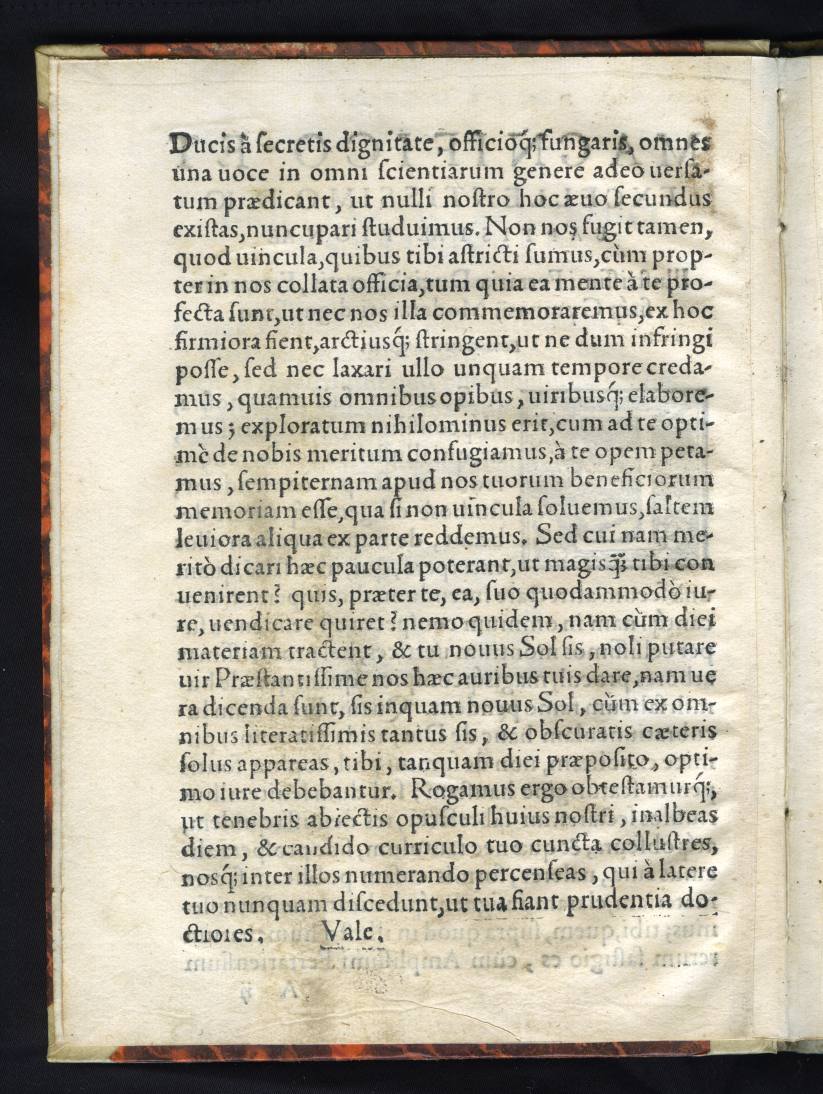 Ducis à secretis dignitate, officioq́; fungaris, omnes
una uoce in omni scientiarum genere adeo uersa-
tum prædicant, ut nulli nostro hoc æuo secundus
existas, nuncupari studuimus. Non nos fugit tamen,
quod uincula, quibus tibi astricti sumus, cùm prop-
ter in nos collata officia, tum quia ea mente à te pro-
fecta sunt, ut nec nos illa commemoraremus, ex hoc
firmiora fient, arctiusq́; stringent, ut ne dum infringi
posse, sed nec laxari ullo unquam tempore creda-
mus, quamuis omnibus opibus, uiribusq́; elabore-
mus; exploratum nihilominus erit, cum ad te opti-
mè de nobis meritum confugiamus, à te opem peta-
mus, sempiternam apud nos tuorum beneficiorum
memoriam esse, qua si non uincula soluemus, saltem
leuiora aliqua ex parte reddemus. Sed cui nam me-
ritò dicari hæc paucula poterant, ut magis q̃; tibi con
uenirent? quis, præter te, ea, suo quodammodò iu-
re, uendicare quiret? nemo quidem, nam cùm diei
materiam tractent, & tu nouus Sol sis, noli putare
uir Præstantissime nos hæc auribus tuis dare, nam ue
ra dicenda sunt, sis inquam nouus Sol, cùm ex om-
nibus literatissimis tantus sis, & obscuratis cæteris
solus appareas, tibi, tanquam diei præposito, opti-
mo iure debebantur. Rogamus ergo obtestamurq́;,
ut tenebris abiectis opusculi huius nostri, inalbeas
diem, & candido curriculo tuo cuncta collustres,
nosq́; inter illos numerando percenseas, qui à latere
tuo nunquam discedunt, ut tua fiant prudentia do-
ctiores. Vale.